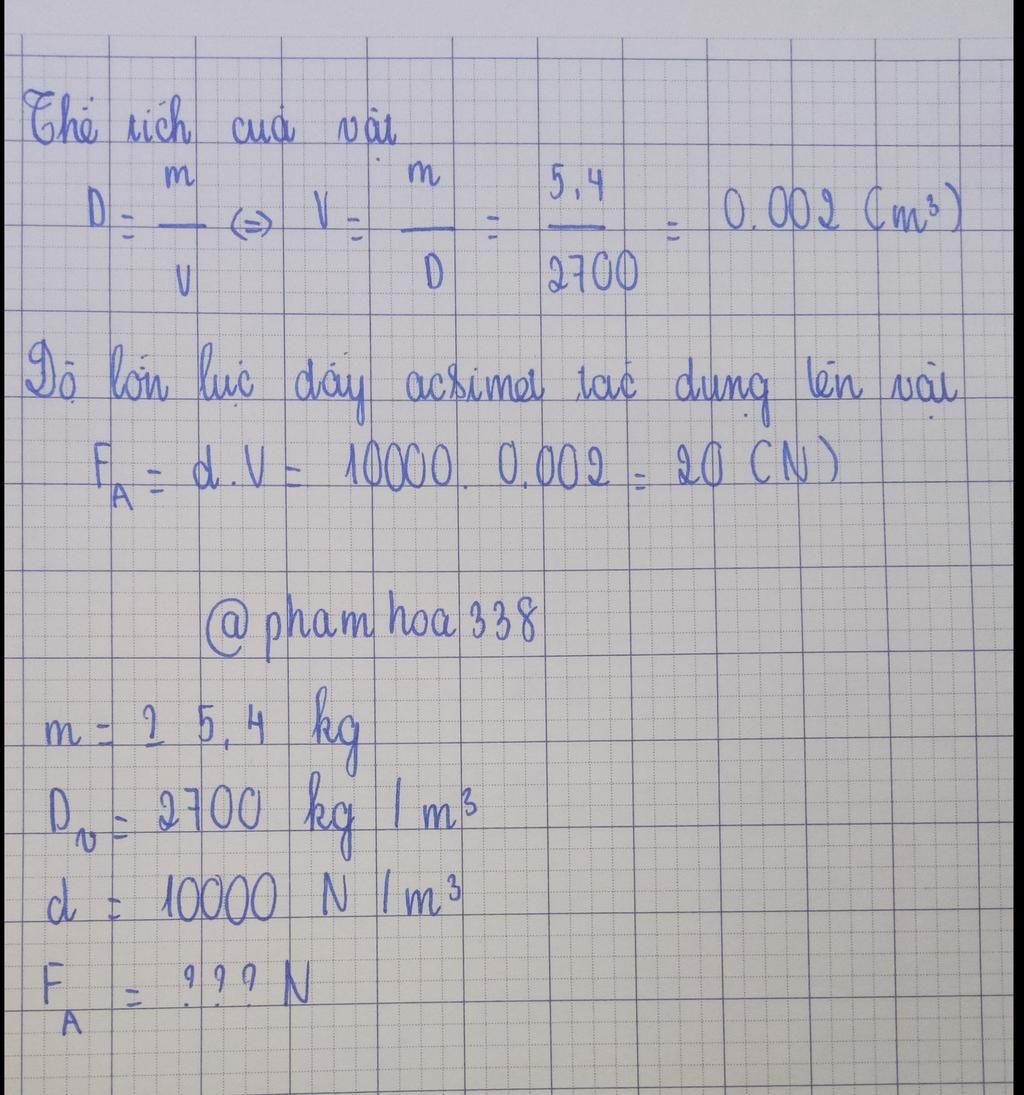 Thể tích của vật
D = m/V ⇔ V = m/D = 5,4/2700 = 0.002 (m³)
Độ lớn lực đẩy acsimet tác dụng lên vật
F_A = d.V = 10000. 0.002 = 20 (N)
@phamhoa338
m = 5,4 kg
D_v = 2700 kg/m³
d = 10000 N/m³
F_A = ??? N